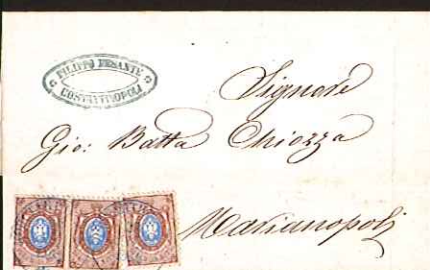 FILIPPO BESANTE
COSTANTINOPOLI
Signore
Gio: Batta Chiozza
Marianopoli